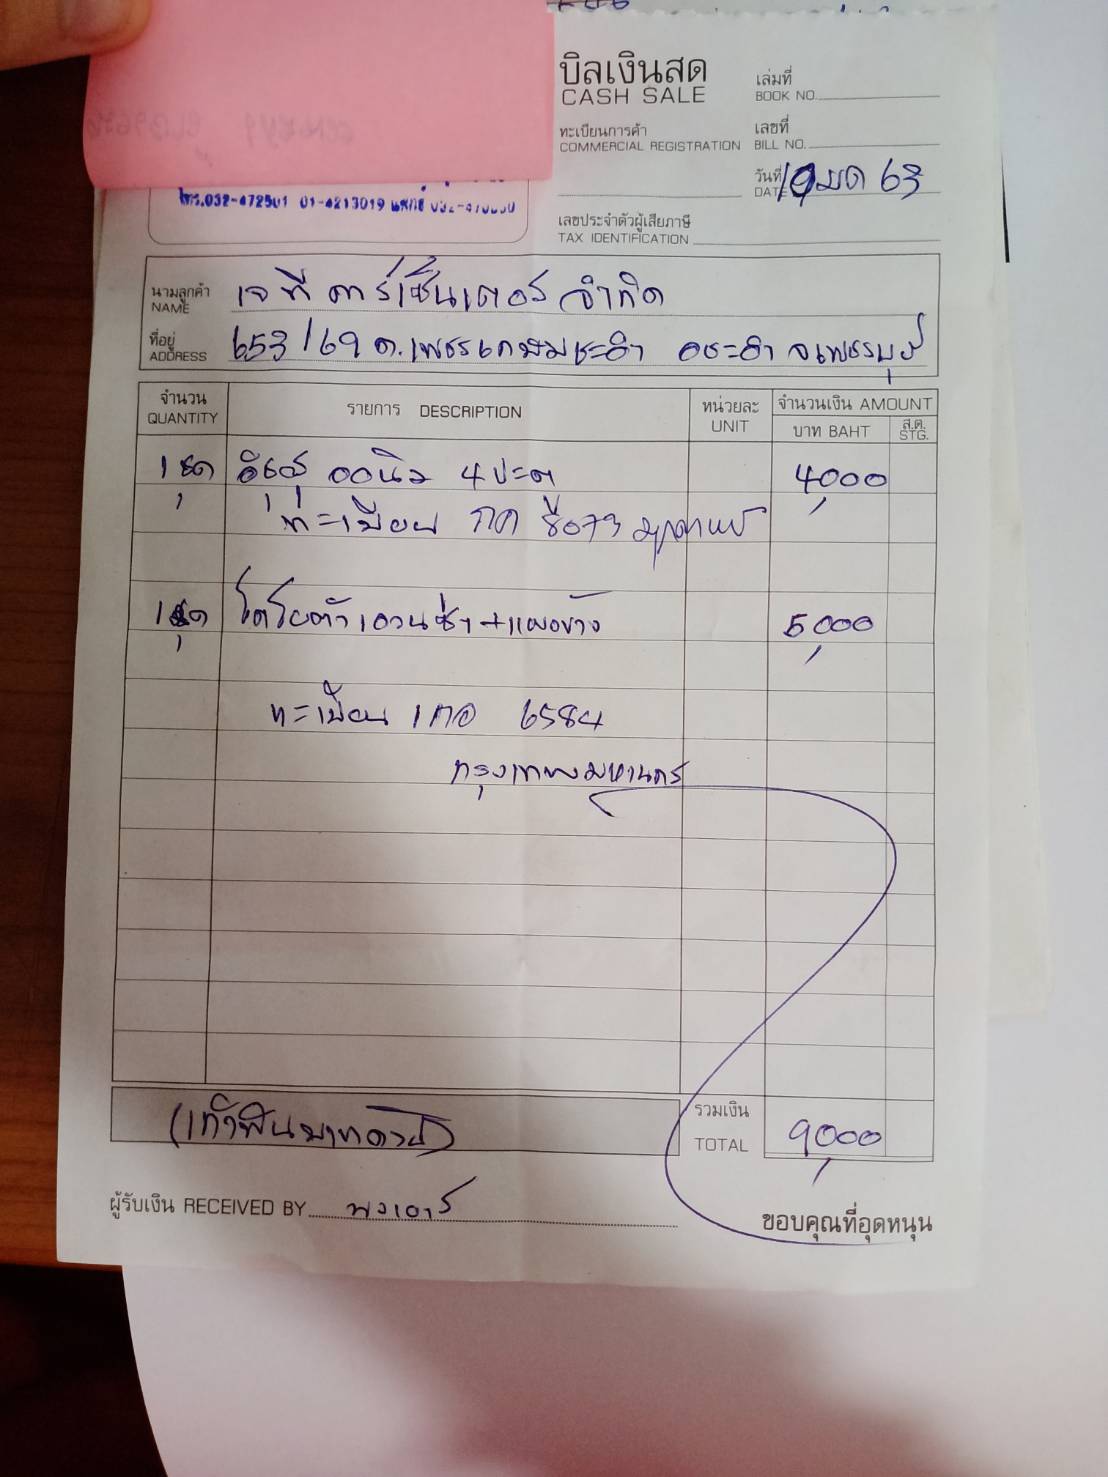 บิลเงินสด
CASH SALE
เล่มที่
BOOK NO.
ทะเบียนการค้า
COMMERCIAL REGISTRATION
เลขที่
BILL NO.
วันที่ 19 มค 63
DATE
เลขประจำตัวผู้เสียภาษี
TAX IDENTIFICATION
โทร.032-472501 01-4213019
นามลูกค้า เจ ที คาร์เซ็นเตอร์ จำกัด
NAME
ที่อยู่ 653/69 ถ.เพชรเกษม ชะอำ อชะอำ จเพชรบุรี
ADDRESS
จำนวน รายการ DESCRIPTION หน่วยละ จำนวนเงิน AMOUNT
QUANTITY UNIT บาท BAHT ส.ต. STG.
1 ชุด อีซูซุ ออนิว 4 ประตู 4,000
ทะเบียน กค 073
1 ชุด โตโยต้า เอวันซ่า + แผงข้าง 5,000
ทะเบียน 1 กอ 6584
กรุงเทพมหานคร
(เก้าพันบาทถ้วน) รวมเงิน 9,000
TOTAL
ผู้รับเงิน RECEIVED BY
ขอบคุณที่อุดหนุน